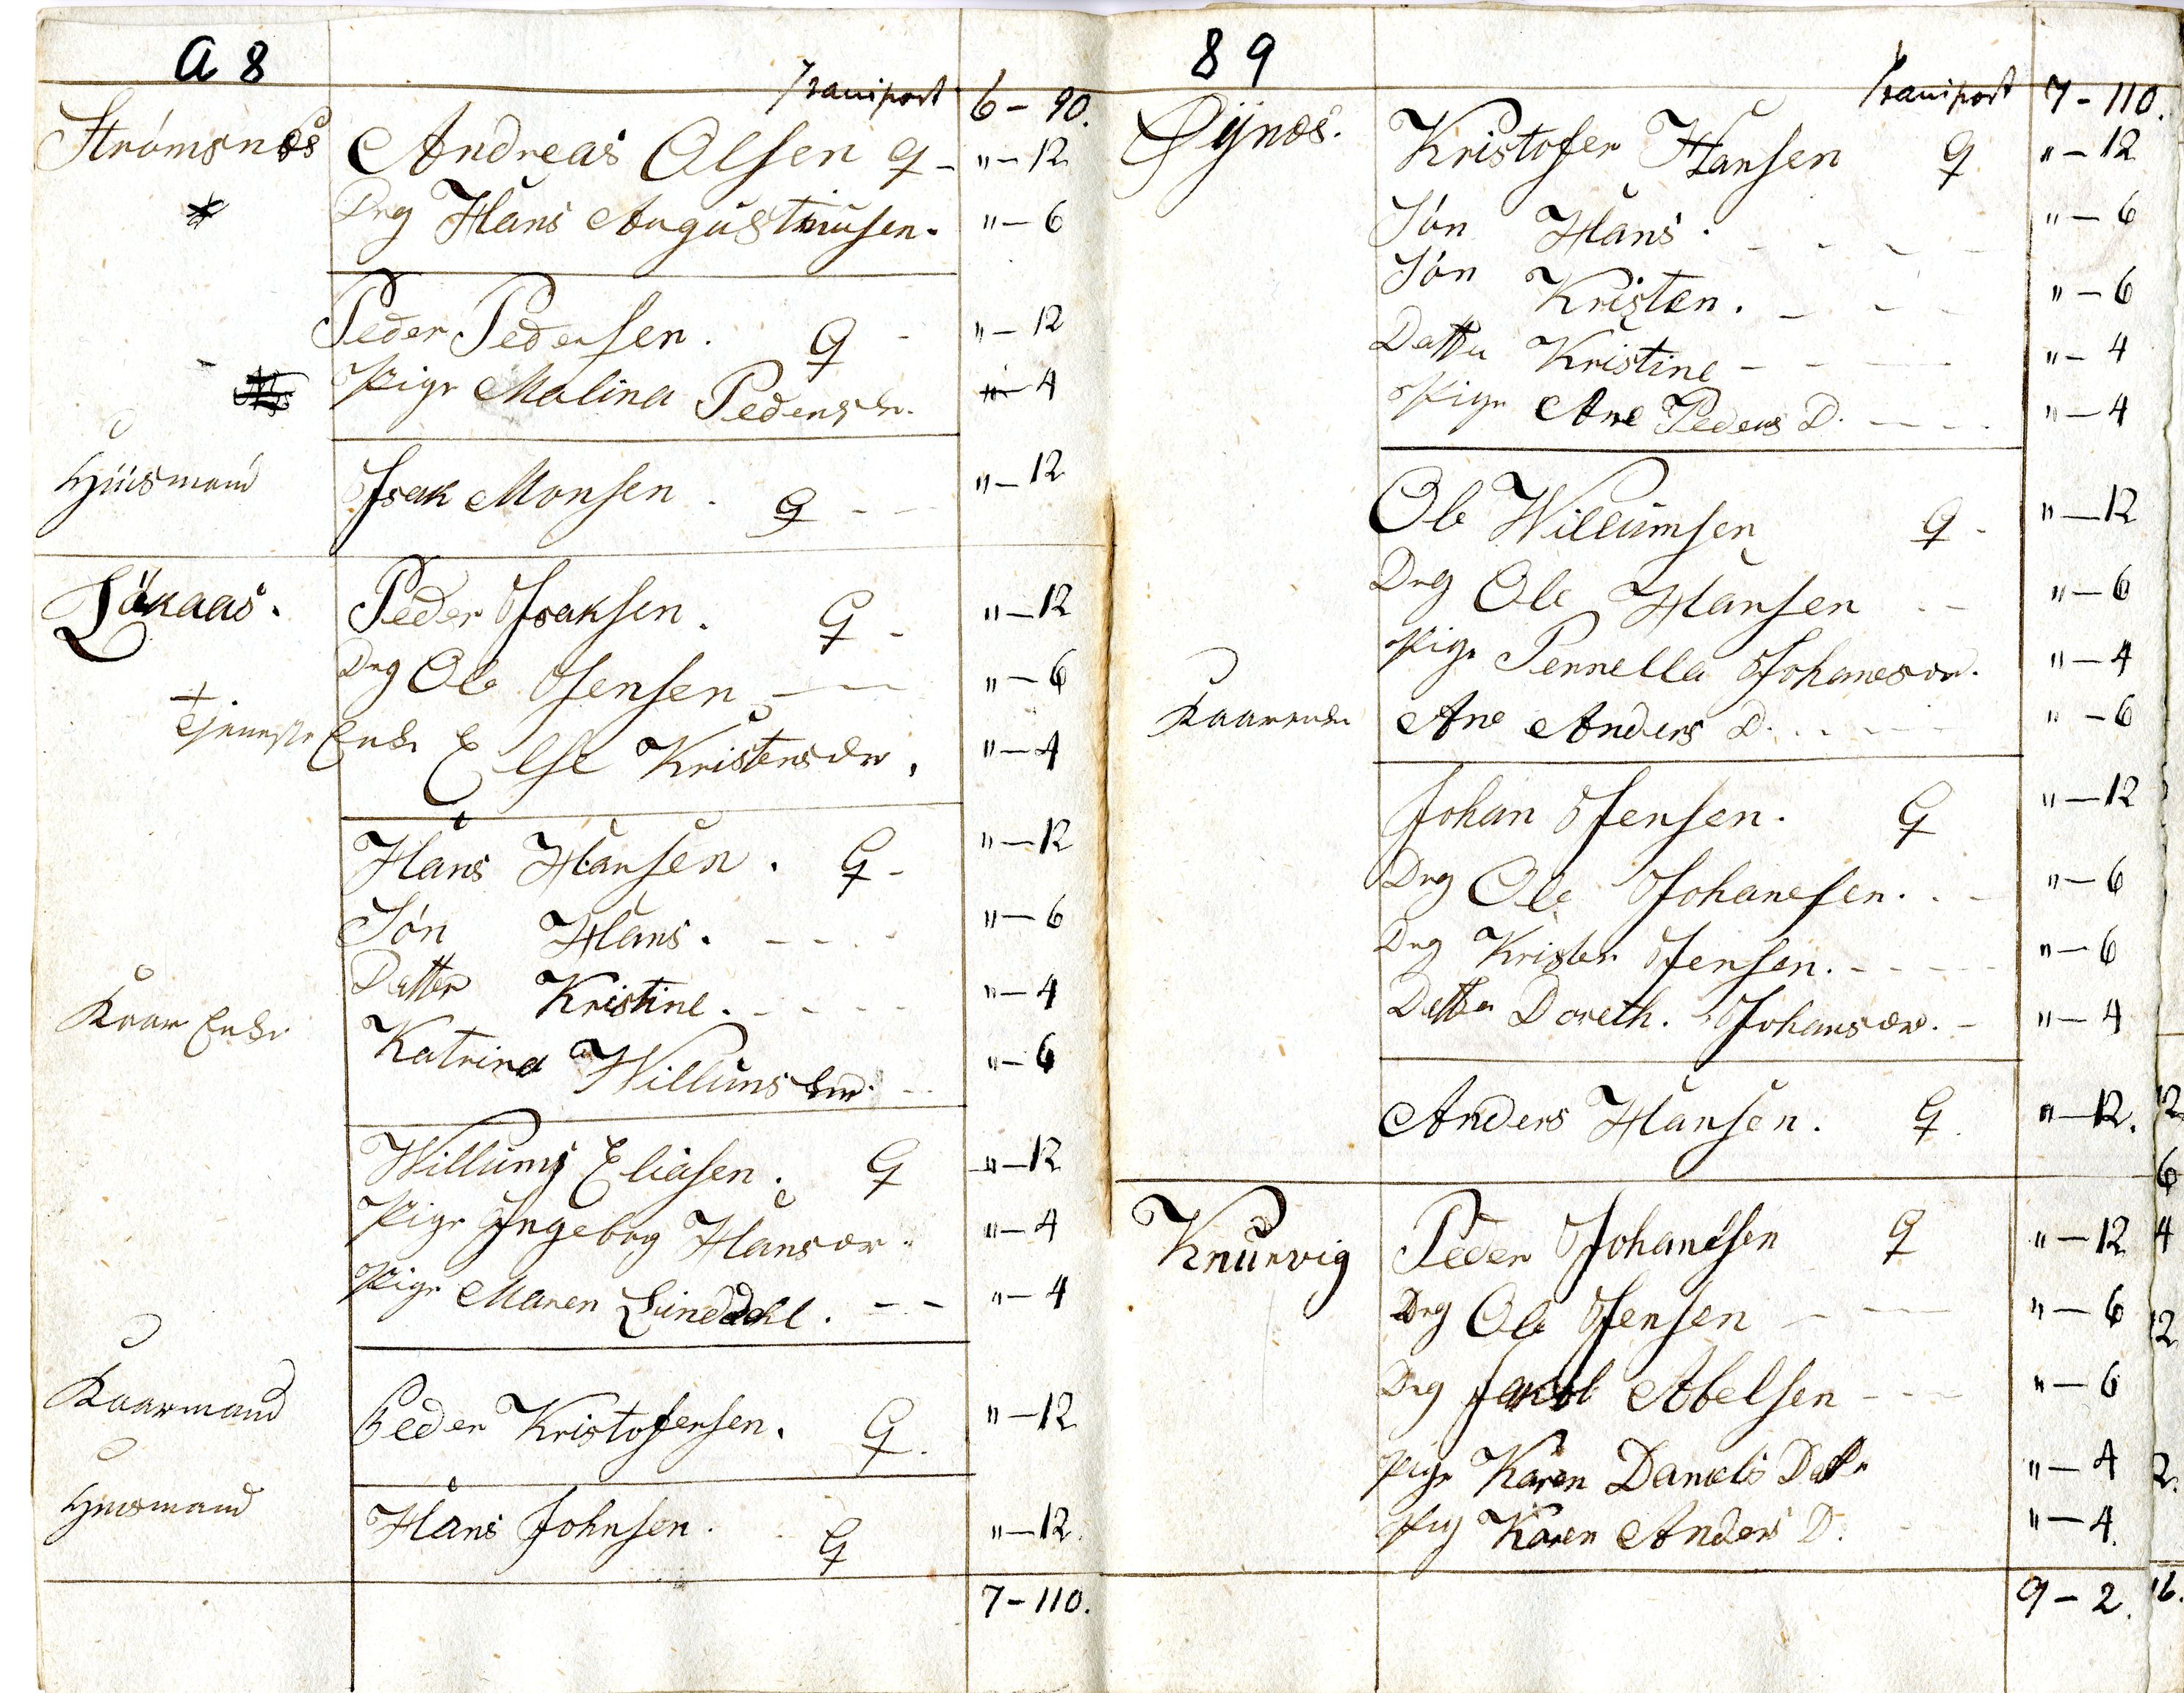 a 8
Transport 6 - 90.
Strömsnæs Andreas Olsen G - " - 12
Drg Hans Augustinusen. " - 6
Peder Pedersen. G - " - 12
Pige Malina Pedersdr. " - 4
Huusmand Isak Monsen. G - - " - 12
Lökaas. Peder Isaksen. G - " - 12
Drg Ole Jensen - " - 6
Tjeneste Enke Else Kristensdr. " - 4
Hans Hansen. G - " - 12
Sön Hans. - - - " - 6
Datter Kristine. - - - - " - 4
Kaar Enke Katrina Willumsdr. - " - 6
Willums Eliasen. G " - 12
Pige Ingebrg Hansdr. " - 4
Pige Maren Lunddahl. - - " - 4
Kaarmand Peder Kristofersen. G. " - 12
Huusmand Hans Johnsen. G " - 12.
7 - 110.
89
Transport 7 - 110.
Öynes. Kristofer Hansen G " - 12
Sön Hans. - - - - " - 6
Sön Kristen. - - - " - 6
Datter Kristine - - - - " - 4
Pige Ane Peders D. - - - " - 4
Ole Willumsen G - " - 12
Drg Ole Hansen - - " - 6
Pige Pernella Johanesdr. " - 4
Kaarenke Ane Anders D. - - - - " - 6
Johan Jensen. G " - 12
Drg Ole Johanesen. - - " - 6
Drg Kristen Jensen. - - - - " - 6
Datter Doreth. Johansdr. - " - 4
Anders Hansen. G. " - 12.
Knurvig Peder Johanesen G " - 12
Drg Ole Jensen - - " - 6
Drg Jakob Abelsen - - - " - 6
Pige Karen Daniels Datr " - 4
Pig Karen Anders D. " - 4.
9 - 2.
12
6
4
12
2.
16.